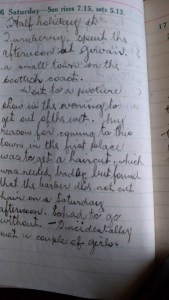 6 Saturday—Sun rises 7.15, sets 5.13.
Half holiday at
spent the
afternoon at
a small town on the
Scottish coast.
Went to a picture
show in the evening to
get out of the wet. My
reason for coming to this
town in the first place
was to get a haircut, which
was needed badly but found
that the barber does not cut
hair on a Saturday
afternoon. So had to go
without. – Incidentally
met a couple of girls.
17